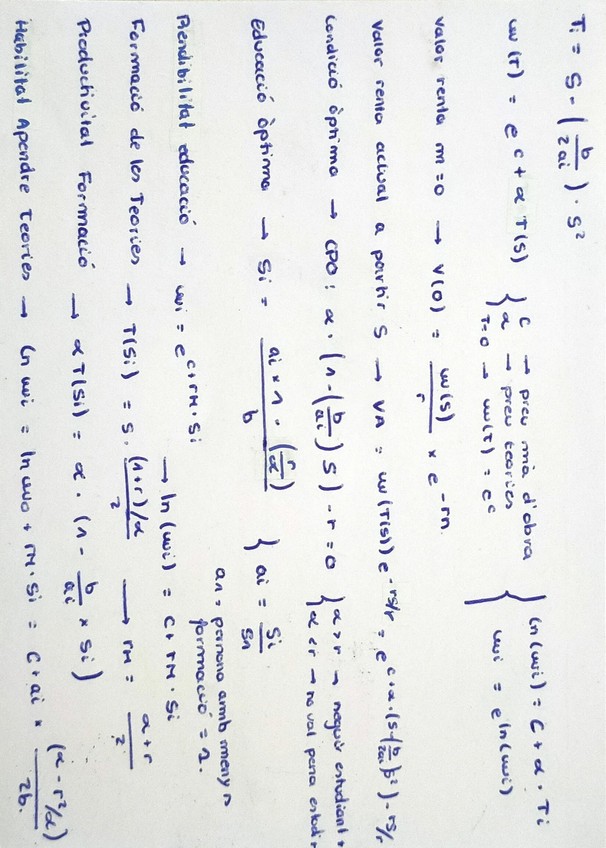 Ti = S - (b/2ai) · S²
w(T) = e^(c + α T(S)) { c → preu mà d'obra
α → preu teories
T=0 → w(T) = e^c } ln(wi) = c + α · Ti
wi = e^ln(wi)
Valor renta m=0 → V(0) = w(s)/r × e^-rn
Valor renta actual a partir S → VA = w(T(s)) e^-rs/r = e^(c+α·(s-(b/2ai)s²)-rs/r
Condició òptima → CPO: α · (1-(b/ai) S) - r = 0 { α > r → seguir estudiant
α < r → no val pena estudi
Educació òptima → Si = ai × 1 - (r/α) / b { ai = Si/Sn
an = persona amb menys
formació = 1.
Rendibilitat educació → wi = e^(c+rM·Si) → ln(wi) = c + rM · Si
Formació de les Teories → T(Si) = S · (1+r)/α / 2 → rM = α+r / 2
Productivitat Formació → αT(Si) = α · (1 - b/ai × Si)
Habilitat Apendre Teories → ln wi = ln w0 + rM · Si = c + ai × (α - r²/α) / 2b.